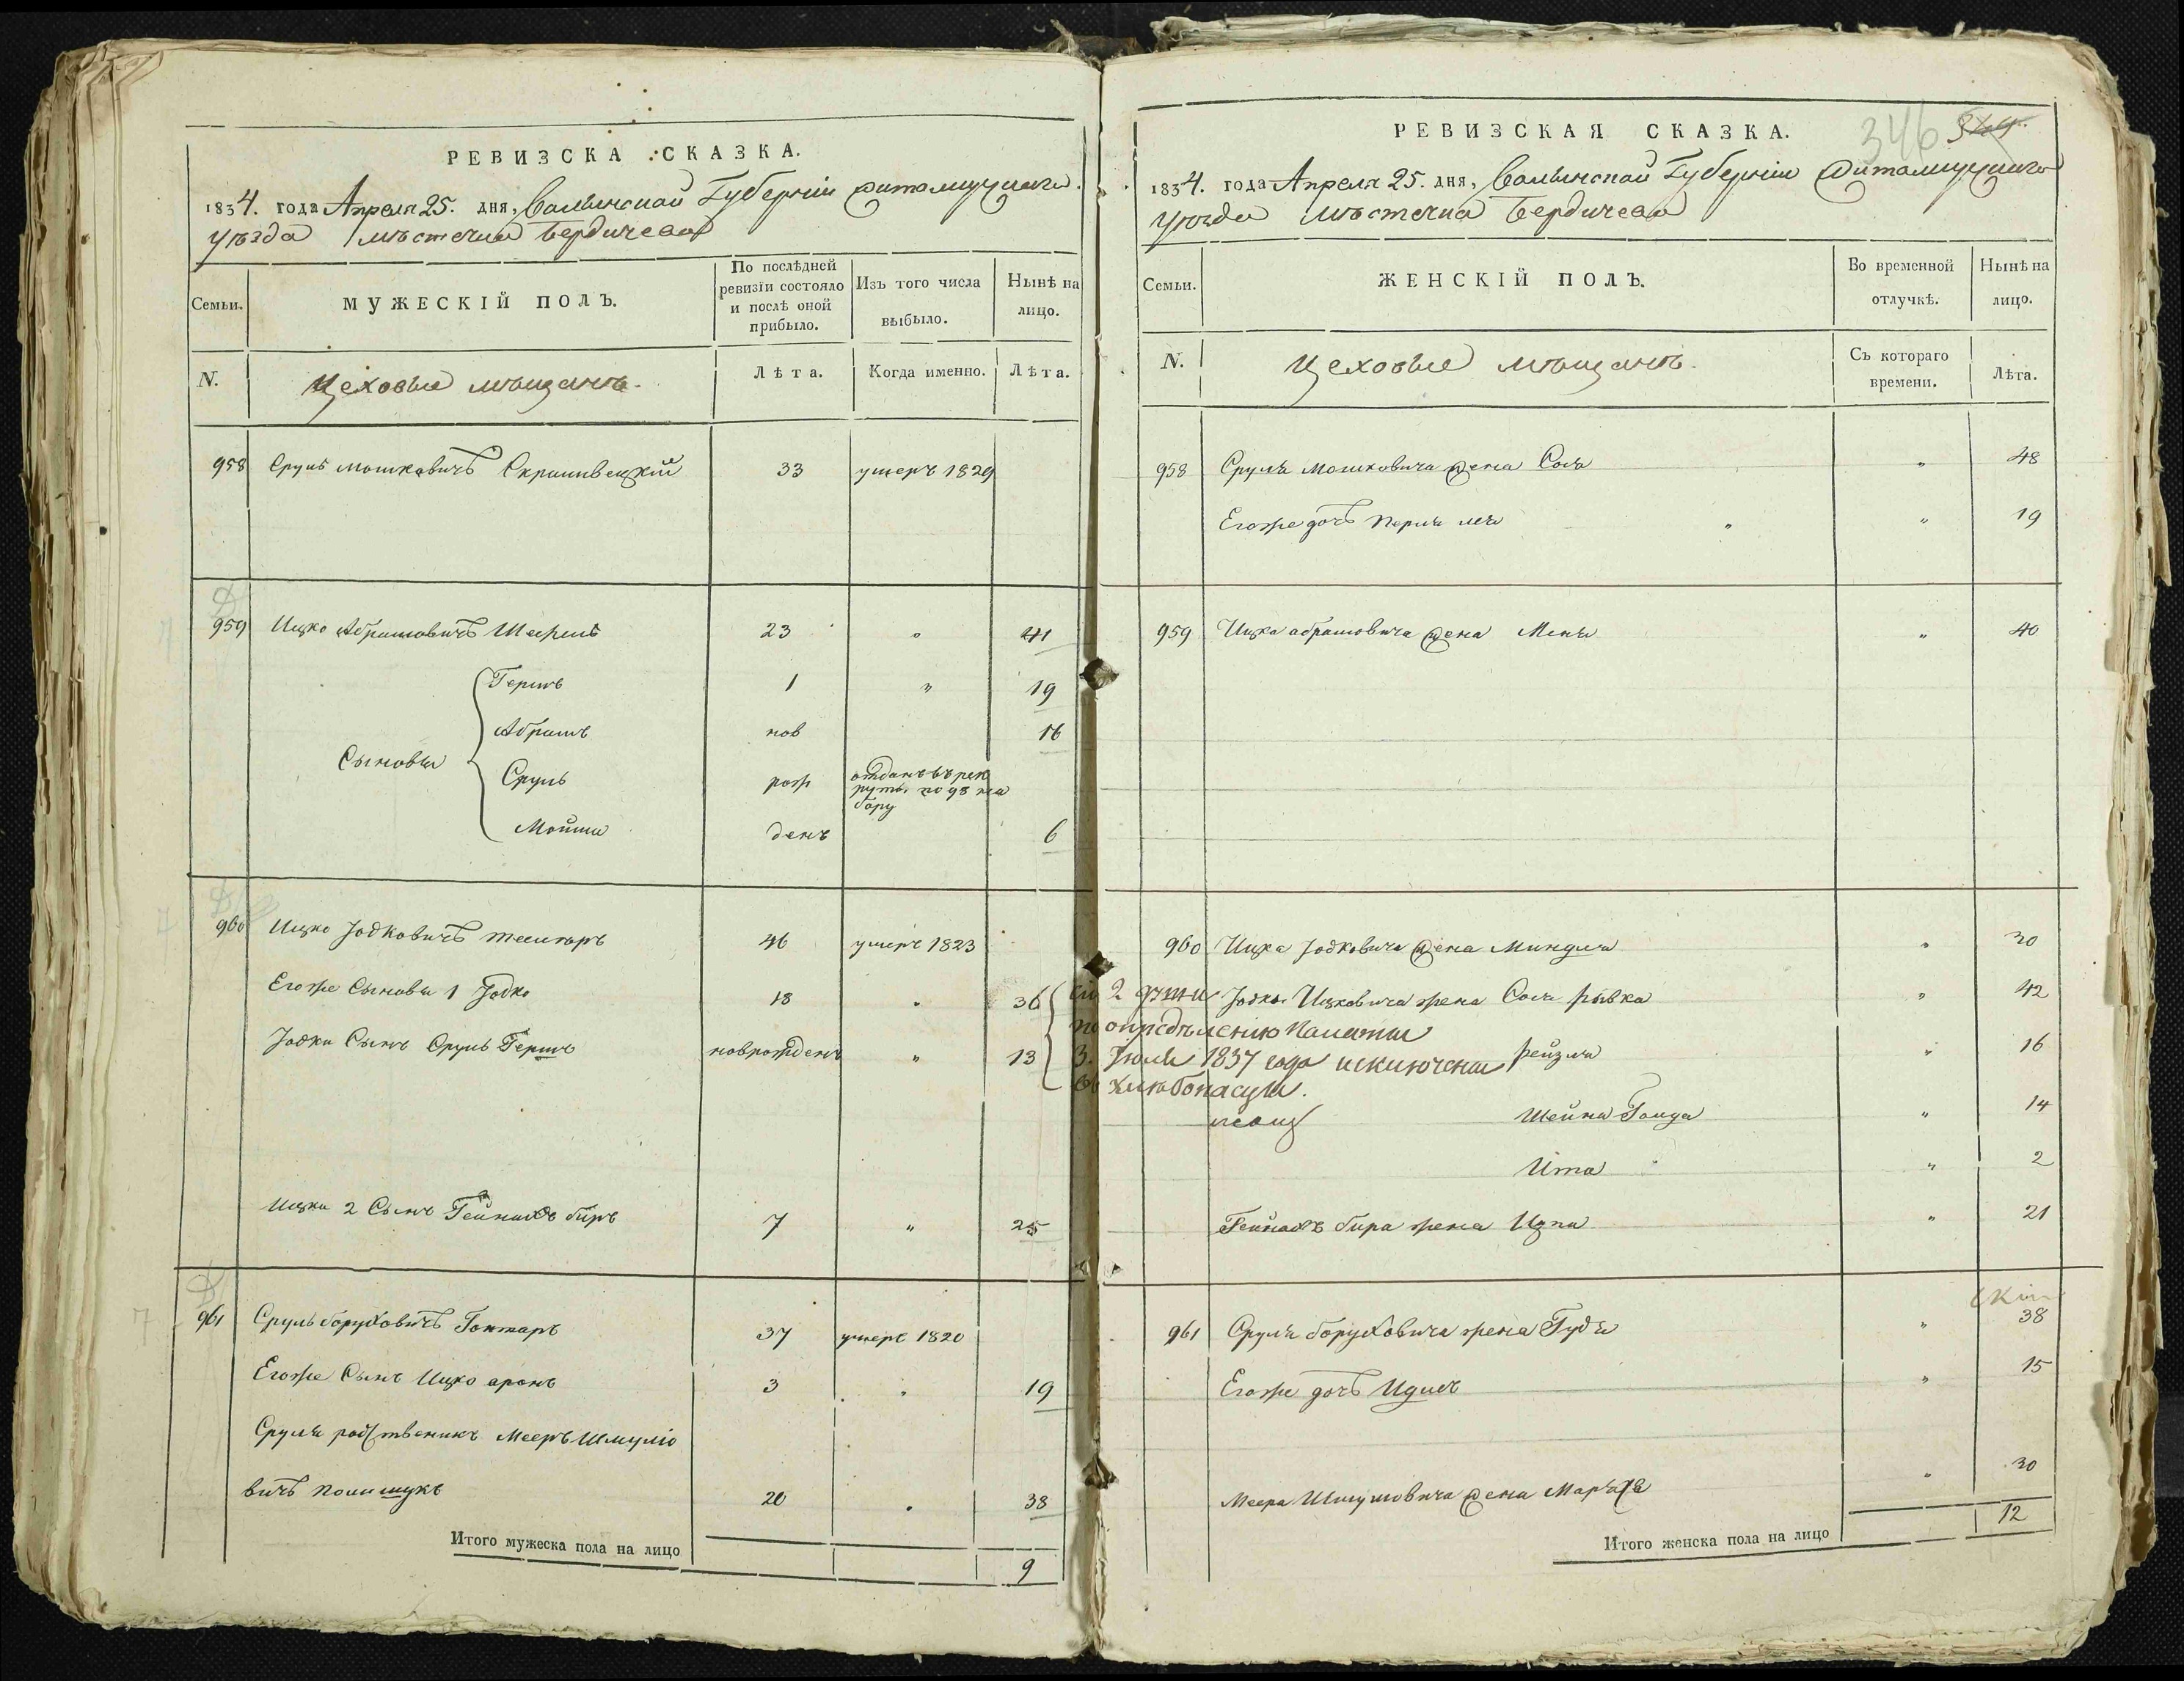 РЕВИЗСКА СКАЗКА.
1834. года Апреля 25. дня, Волынской Губерніи Житомирскаго
уѣзда мѣстечка Бердичева
Семьи.
МУЖЕСКІЙ ПОЛЪ.
По послѣдней ревизіи состояло и послѣ оной прибыло.
Изъ того числа выбыло.
Нынѣ на лицо.
N.
Цеховые мѣщанѣ.
Лѣта.
Когда именно.
Лѣта.
958 Сруль Мошковичъ 33 умеръ 1829
959 Ицко Абрамовичъ 23 " 41
Сыновья
Гершъ 1 " 19
Абрамъ нов 16
Сруль рож отданъ въ рек
руты по 98 на
бору
Мойша денъ 6
960 Ицко Іоскевичъ 46 умеръ 1823
Егоже Сыновья 1 Іосько 18 " 36
Іоськи Сынъ Сруль Гершъ новорожденъ " 13
Ицки 2 Сынъ Гейнахъ биръ 7 " 25
961 Сруль боруховичъ Гонтаръ 37 умеръ 1820
Егоже Сынъ Ицко аронъ 3 " 19
Сруля родственикъ Мееръ Шмуліо
вичъ полищукъ 20 " 38
Итого мужеска пола на лицо 9
РЕВИЗСКАЯ СКАЗКА.
346
1834. года Апреля 25. дня, Волынской Губерніи Житомирскаго
уѣзда мѣстечка Бердичева
Семьи.
ЖЕНСКІЙ ПОЛЪ.
Во временной отлучкѣ.
Нынѣ на лицо.
N.
Цеховые мѣщанѣ.
Съ котораго времени.
Лѣта.
958 Сруля Мошковича жена Сося " 48
Егоже дочь Перля лея " 19
959 Ицка абрамовича жена Меня " 40
960 Ицка Іоскевича жена Миндля " 30
сіи 2 души Іоськи Ицковича жена Сося рывка " 42
по опредѣленію Палаты
3. Іюля 1837 года исключены рейзля " 16
въ хлѣбопасцы.
Шейна Голда " 14
Ита " 2
Гейнахъ бира жена Ципа " 21
961 Сруля боруховича жена Гудя " 38
Егоже дочь Идисъ " 15
Меера Шмулиовича жена " 30
Итого женска пола на лицо 12